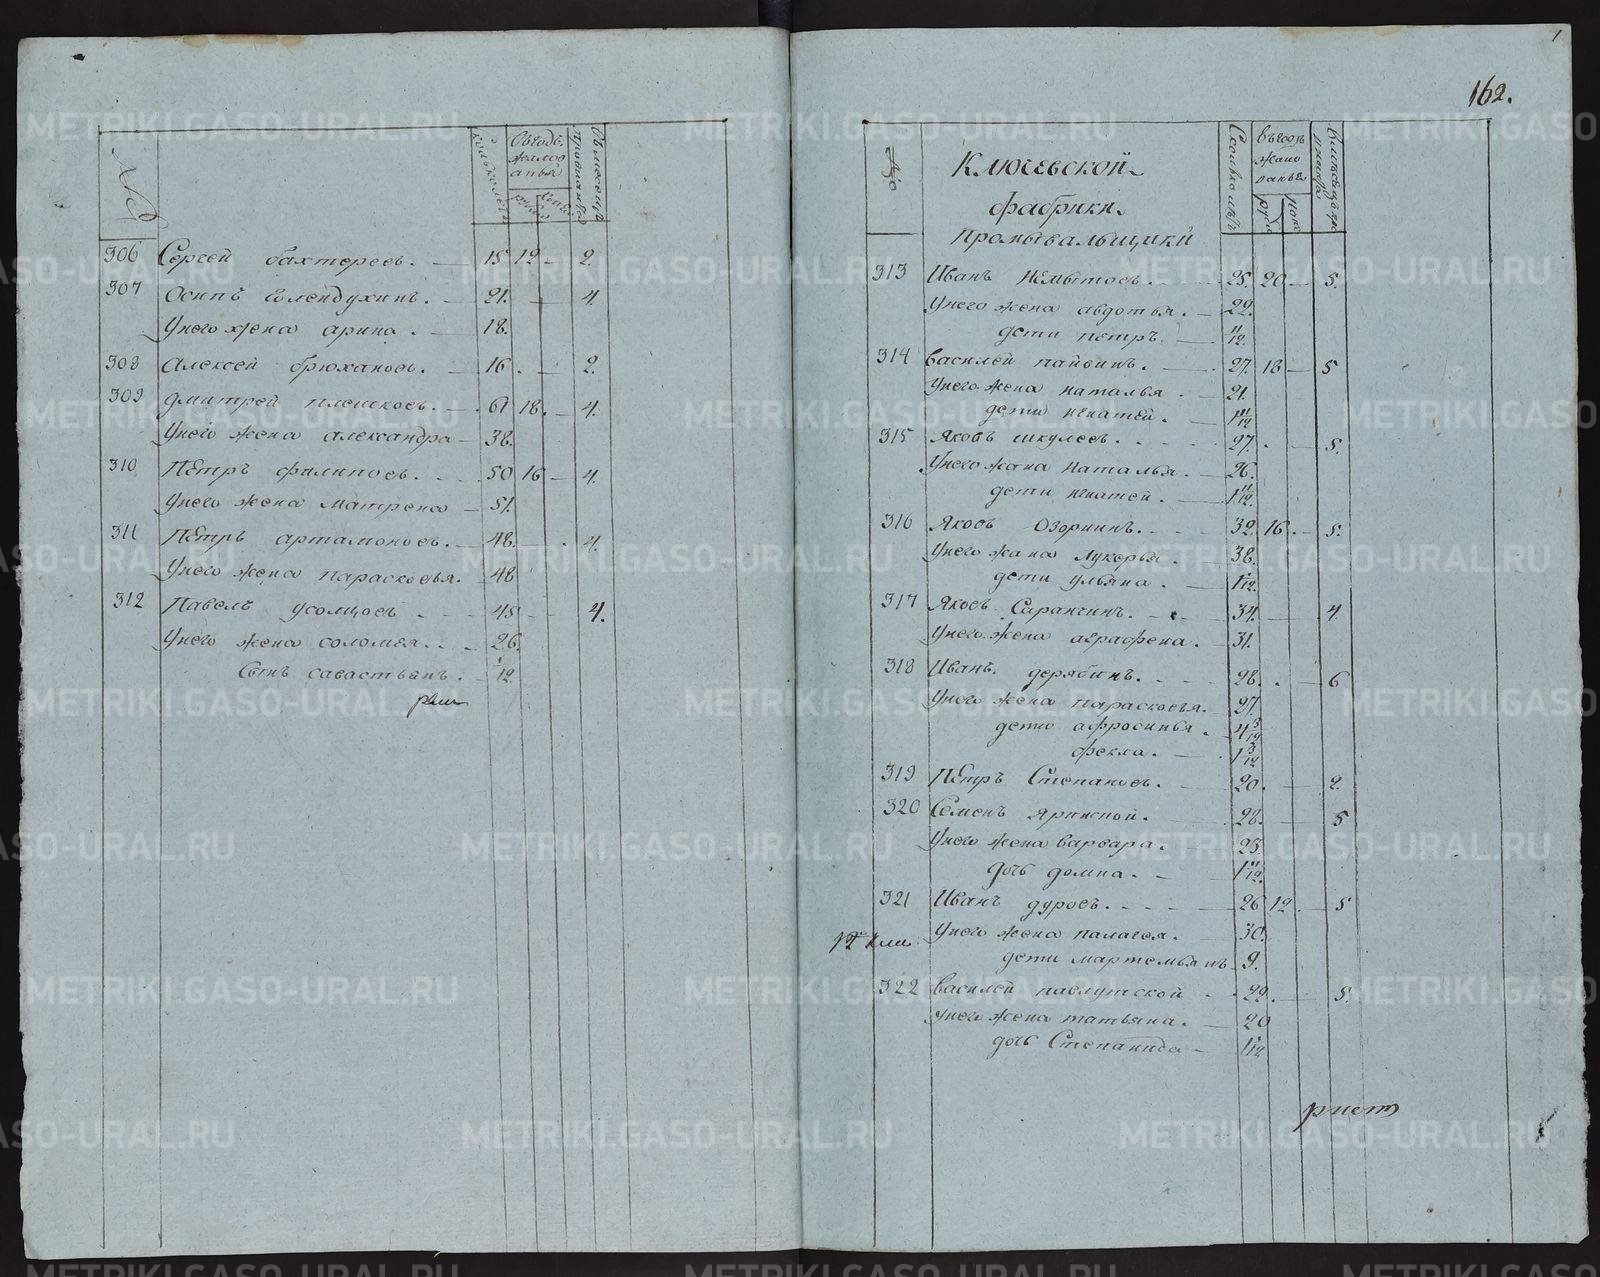 №
Сколько летъ
Въ годъ
жалованья
рубли
копе
Въ месецъ
провианта
306 Сергей бахтеревъ. 15 12 2.
307 Осипъ Голендухинъ. 21. 4.
Унего жена арина. 18.
308 Алексей брюхановъ. 16. 2.
309 Дмитрей плешковъ. 61 18. 4.
Унего жена александра 38.
310 Петръ филиповъ. 50 16 4.
Унего жена матрена 51.
311 Петръ артамоновъ. 48. 4.
Унего жена парасковья. 48
312 Павелъ усолцовъ 45 4.
Унего жена соломея. 26.
Сынъ савастьянъ. 1/12
162.
№
Ключевской
фабрики
промывальщики
Сколко летъ
въ годъ
жало
ванья
руб
копе
313 Иванъ Немытовъ. 25. 20 5.
Унего жена авдотья. 22.
дети петръ 11/12.
314 Василей пайвинъ. 27. 18 5
Унего жена наталья. 21.
дети игнатей. 1 11/12
315 Яковъ шкулевъ. 27. 5.
Унего жена наталья. 26.
дети игнатей. 1 11/12.
316 Яковъ Озорнинъ. 32. 16. 5.
Унего жена лукерья. 38.
дети ульяна. 1 1/12.
317 Яковъ Саранчинъ. 34. 4.
Унего жена аграфена. 31.
318 Иванъ дерябинъ. 28. 6
Унего жена парасковья. 27.
дети афросинья. 4 3/12
фекла. 1 3/12
319 Петръ Степановъ. 20. 2.
320 Семенъ Яринской. 28. 5
Унего жена варвара. 23.
дочь домна. 1 11/12.
321 Иванъ дуровъ. 26 12. 5
Унего жена палагея. 30.
дети мартемьянъ 9.
322 Василей павлутской 29. 5.
Унего жена татьяна. 20
дочь Степанида 1 1/12
METRIKI.GASO-URAL.RU